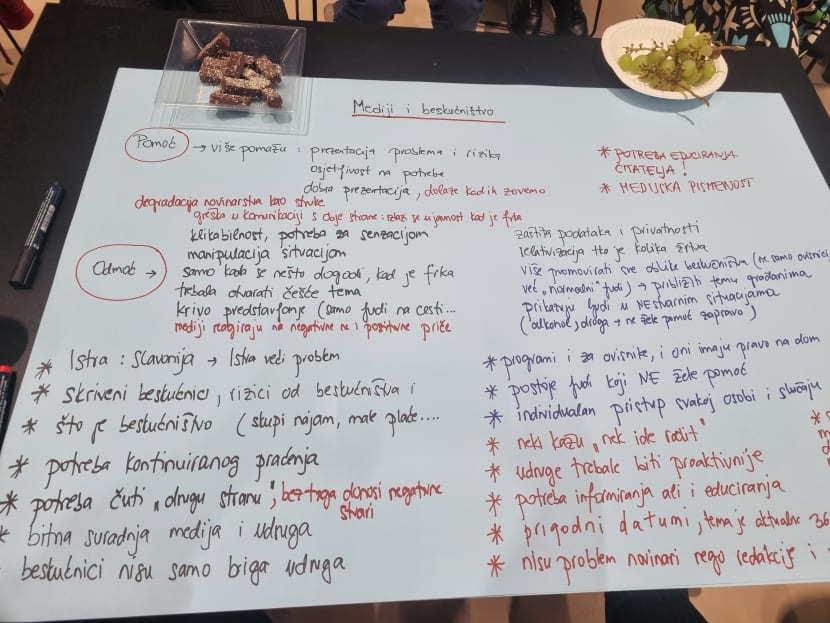 Mediji i beskućništvo
Pomoć → više pomažu : prezentacija problema i rizika
osjetljivost na potrebe
dobra prezentacija, dolaze kad ih zovemo
degradacija novinarstva kao struke
greška u komunikaciji s obje strane: izlazi se u javnost kad je frka
* POTREBA EDUCIRANJA
ČITATELJA!
* MEDIJSKA PISMENOST
Odmoć →
klikabilnost, potreba za senzacijom
manipulacija situacijom
samo kada se nešto dogodi, kad je frka
trebala otvarati češće tema
krivo predstavljanje (samo ljudi na cesti...
mediji reagiraju na negativne ne i pozitivne priče
zaštita podataka i privatnosti
relativizacija tko je kolika žrtva
više promovirati sve oblike beskućništva (ne samo ovisnici
već „normalni" ljudi) → približiti temu građanima
prikazuju ljudi u NEstvarnim situacijama
(alkohol, droga → ne žele pomoć zapravo)
* Istra : Slavonija → Istra veći problem
* Skriveni beskućnici, rizici od beskućništva i
* što je beskućništvo (skupi najam, male plaće....
* potreba kontinuiranog praćenja
* potreba čuti „drugu stranu", bez toga donosi negativne
stvari
* bitna suradnja medija i udruga
beskućnici nisu samo briga udruga
* programi i za ovisnike, i oni imaju pravo na dom
* postoje ljudi koji NE žele pomoć
* individualan pristup svakoj osobi i slučaju
* neki kažu „nek ide radit"
* udruge trebale biti proaktivnije
* potreba informiranja ali i educiranja
* prigodni datumi, tema je aktualna 36
* nisu problem novinari nego redakcije i